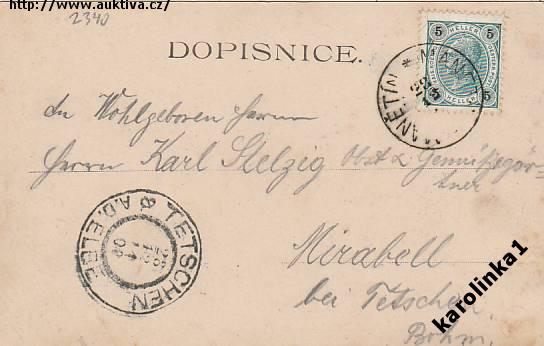 http://www.auktiva.cz/
2340
DOPISNICE.
5 HELLER 5
5 HELLER 5
MANETIN * MANETÍN
An Wohlgeboren Herrn
Herrn Karl Stelzig Obst & Gemüsegärtner
Mirabell
bei Tetschen
Böhm.
TETSCHEN
& A.D. ELBE
karolinka1